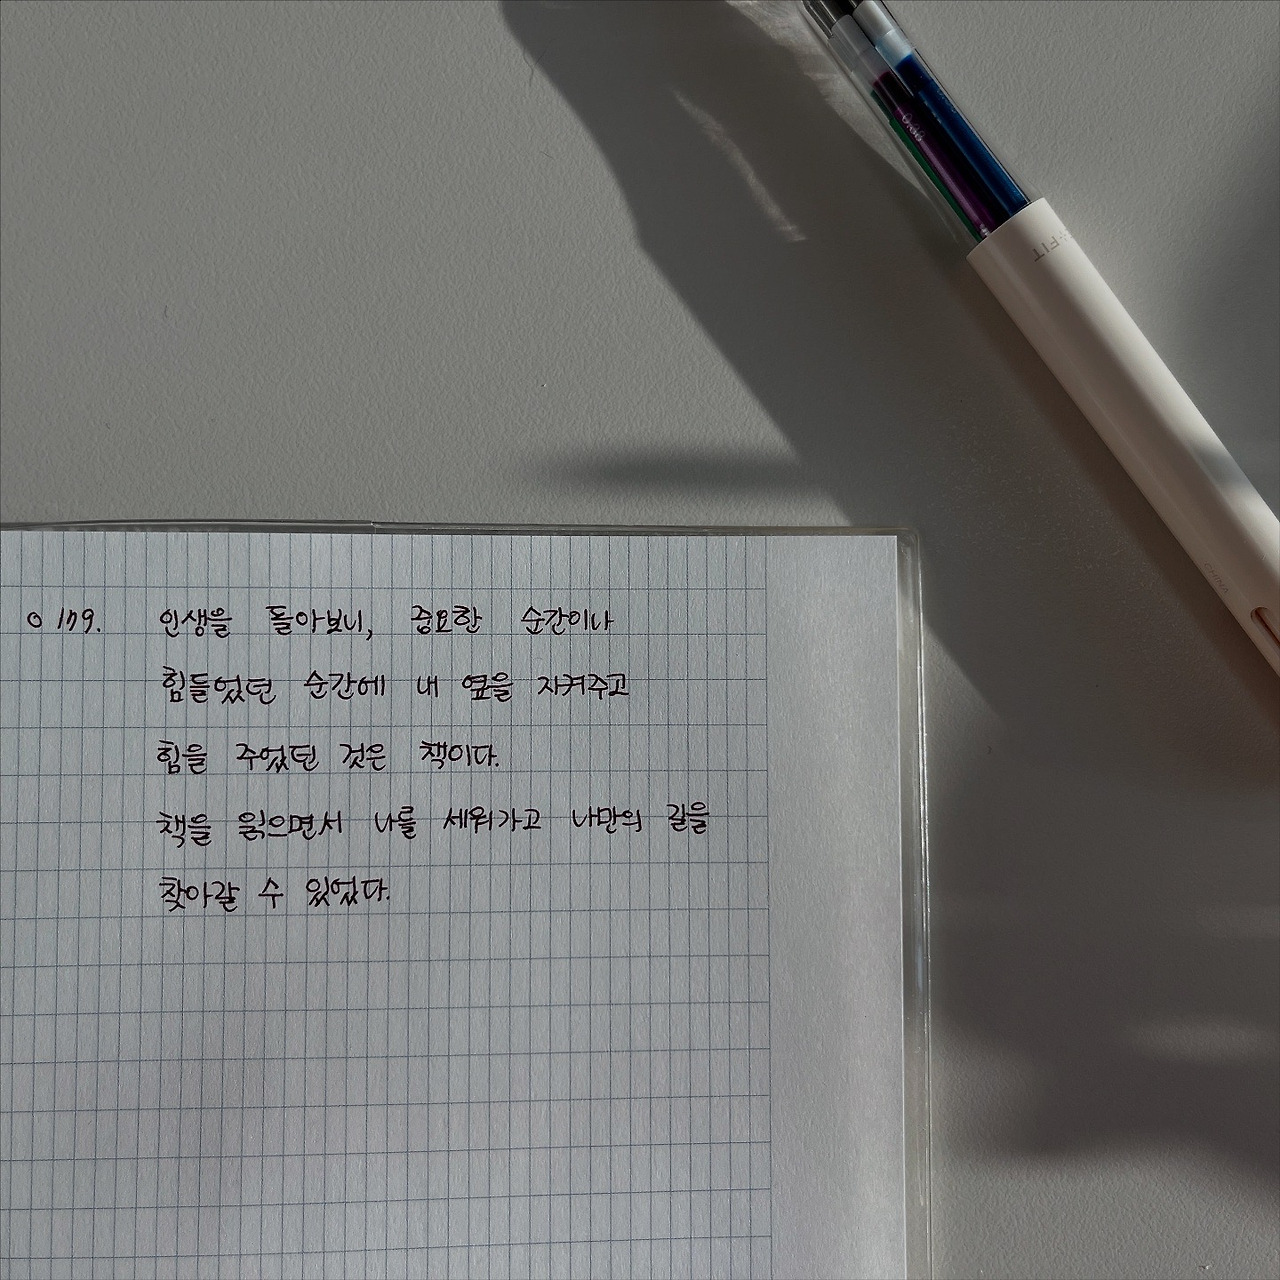 0.38
FIT
CHINA
인생을 돌아보니, 중요한 순간이나
힘들었던 순간에 내 옆을 지켜주고
힘을 주었던 것은 책이다.
책을 읽으면서 나를 세워가고 나만의 길을
찾아갈 수 있었다.